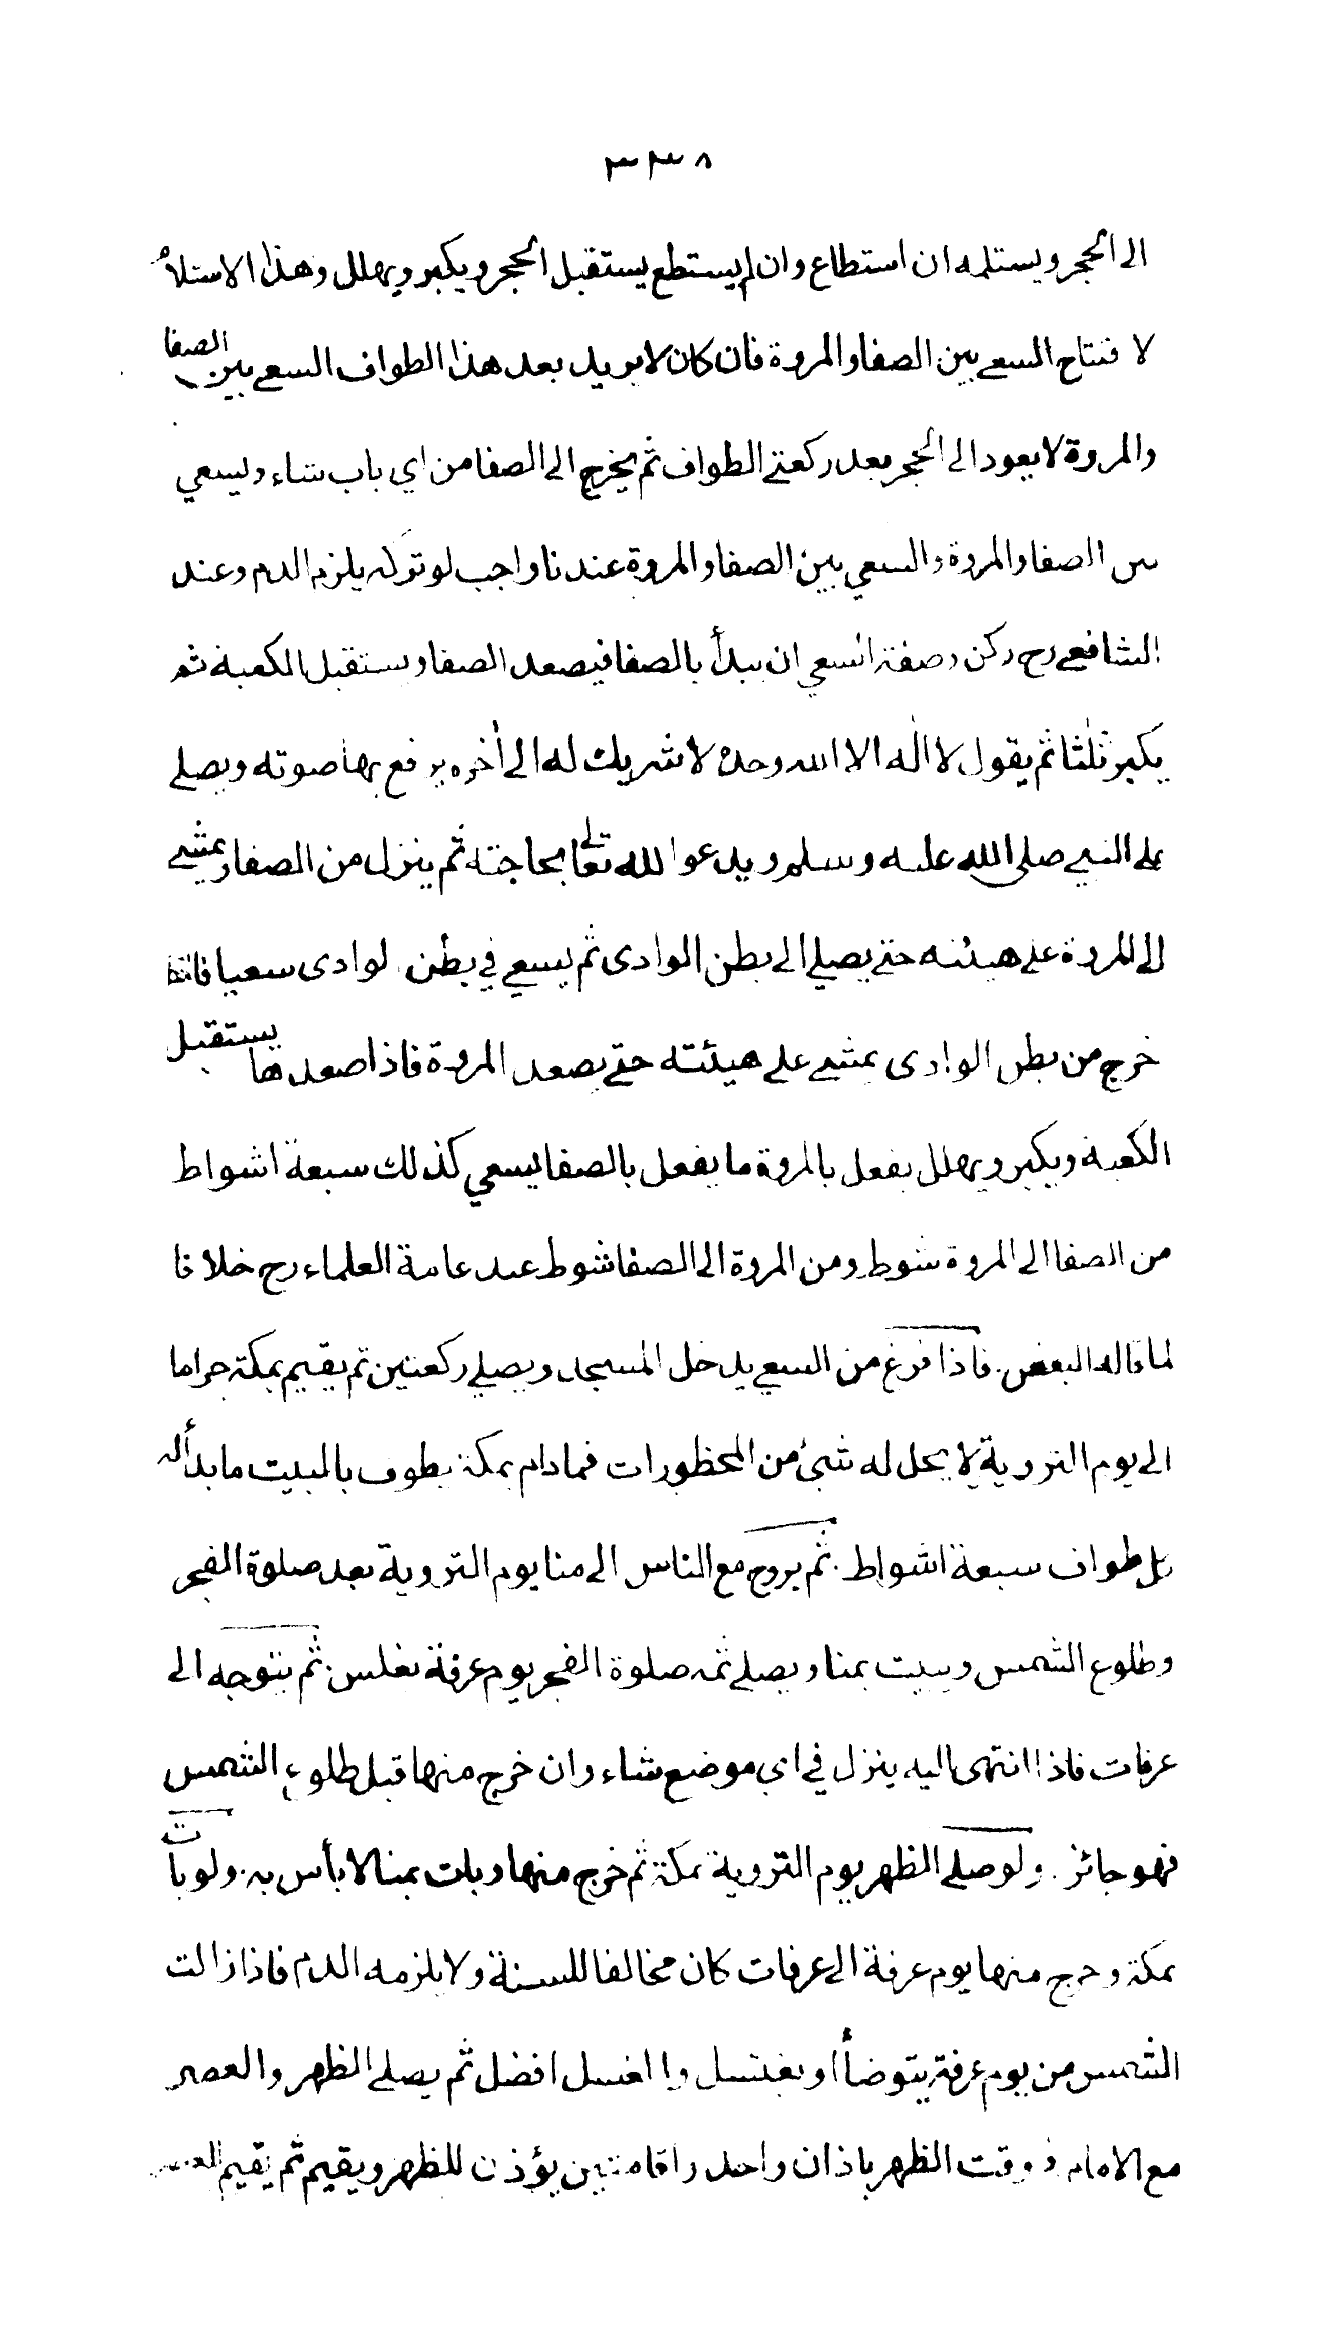 ٣٣٨
الى الحجر ويستلمه ان استطاع وان لم يستطع يستقبل الحجر ويكبر ويهلل وهذا الاستلام
لافتتاح السعي بين الصفا والمروة فان كان لا يريد بعد هذا الطواف السعي بين الصفا
والمروة لا يعود الى الحجر بعد ركعتي الطواف ثم يخرج الى الصفا من اي باب شاء ويسعي
بين الصفا والمروة والسعي بين الصفا والمروة عندنا واجب لو تركه يلزم الدم وعند
الشافعي رح ركن وصفة السعي ان يبدأ بالصفا فيصعد الصفا ويستقبل الكعبة ثم
يكبر ثلثا ثم يقول لا اله الا الله وحده لا شريك له الى أخره يرفع بها صوته ويصلي
على النبي صلى الله عليه وسلم ويدعوا لله تعالى بحاجته ثم ينزل من الصفا ويمشي
الى المروة على هيئته حتى يصلي الى بطن الوادى ثم يسعي في بطن الوادى سعيا فاذا
خرج من بطن الوادى يمشي على هيئته حتى يصعد المروة فاذا صعدها يستقبل
الكعبة ويكبر ويهلل يفعل بالمروة ما يفعل بالصفا يسعي كذلك سبعة اشواط
من الصفا الى المروة شوط ومن المروة الى الصفا شوط عند عامة العلماء رح خلافا
لما قاله البعض. فاذا فرغ من السعي يدخل المسجد ويصلي ركعتين ثم يقيم بمكة حراما
الى يوم التروية لا يحل له شيئ من المحظورات فما دام بمكة يطوف بالبيت ما بدأ له
كل طواف سبعة اشواط. ثم يروح مع الناس الى منا يوم التروية بعد صلوة الفجر
وطلوع الشمس ويبيت بمنا ويصلي ثمه صلوة الفجر يوم عرفة بغلس. ثم يتوجه الى
عرفات فاذا انتهى اليه ينزل في اي موضع شاء وان خرج منها قبل طلوع الشمس
فهو جائز. ولو صلى الظهر يوم التروية بمكة ثم خرج منها وبات بمنا لا بأس به. ولو بات
بمكة وخرج منها يوم عرفة الى عرفات كان مخالفا للسنة ولا يلزمه الدم فاذا زالت
الشمس من يوم عرفة يتوضأ او يغتسل والغسل افضل ثم يصلي الظهر والعصر
مع الامام وقت الظهر باذان واحد واقامتين يؤذن للظهر ويقيم ثم يقيم للعصر